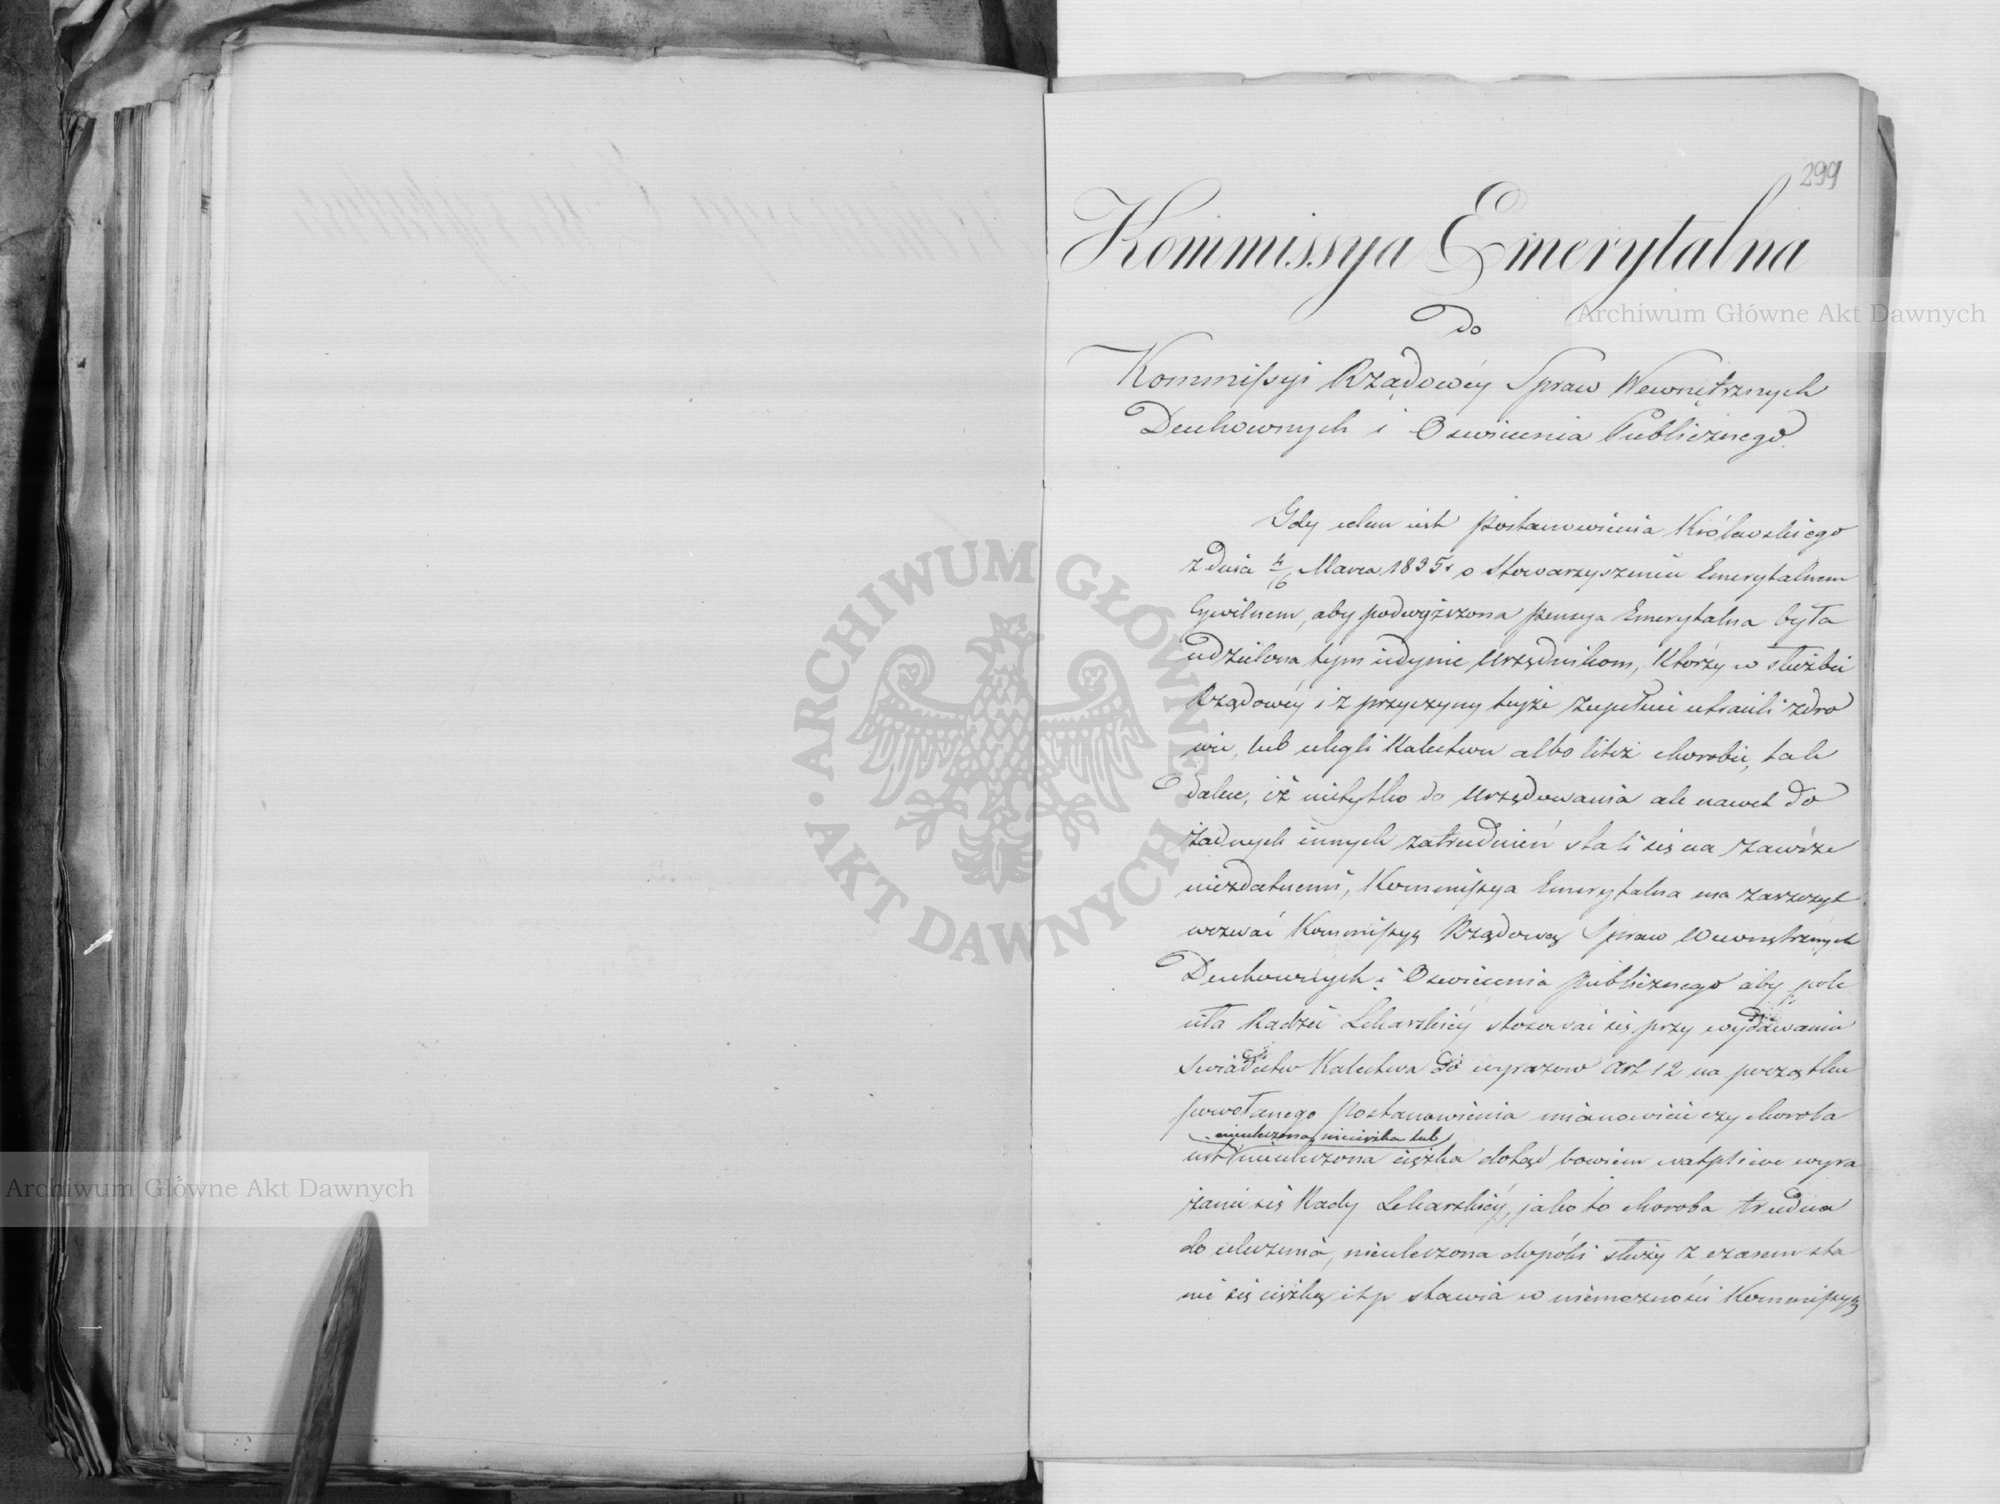 299
Kommissya Emerytalna
do
Kommissyi Rządowéy Spraw Wewnętrznych
Duchownych i Oswiecenia Publicznego.
Gdy celem iest Postanowienia Królewskiego
z dnia 4/16 Marca 1835 r o Stowarzyszeniu Emerytalnem
Cywilnem, aby podwyższona pensya Emerytalna była
udzielona tym iedynie Urzędnikom, którzy w służbie
Rządowéy i z przyczyny teyże zupełnie utracili zdro
wie, lub ulegli kalectwu albo téż chorobie, tak
dalece, iż nietylko do Urzędowania ale nawet do
żadnych innych zatrudnień stali się na zawsze
niezdatnemi, Kommissya Emerytalna ma zaszczyt
wezwać Kommissyą Rządową Spraw Wewnętrznych
Duchownych i Oswiecenia Publicznego aby pole
ciła Radzie Lekarskiéy stosować się przy wydawaniu
swiadectw Kalectwa do wyrazow Art 12 na początku
powołanego Postanowienia mianowicie czy choroba
nieuleczona, nieciężka lub
iest nieuleczona ciężka dotąd bowiem wątpliwe wyra
żanie się Rady Lekarskiéy, jako to choroba trudna
do uleczenia, nieuleczona dopóki służy z czasem sta
nie się ciężką itp stawia w niemożności Kommissyą
Archiwum Główne Akt Dawnych
Archiwum Główne Akt Dawnych
ARCHIWUM GŁÓWNE AKT DAWNYCH